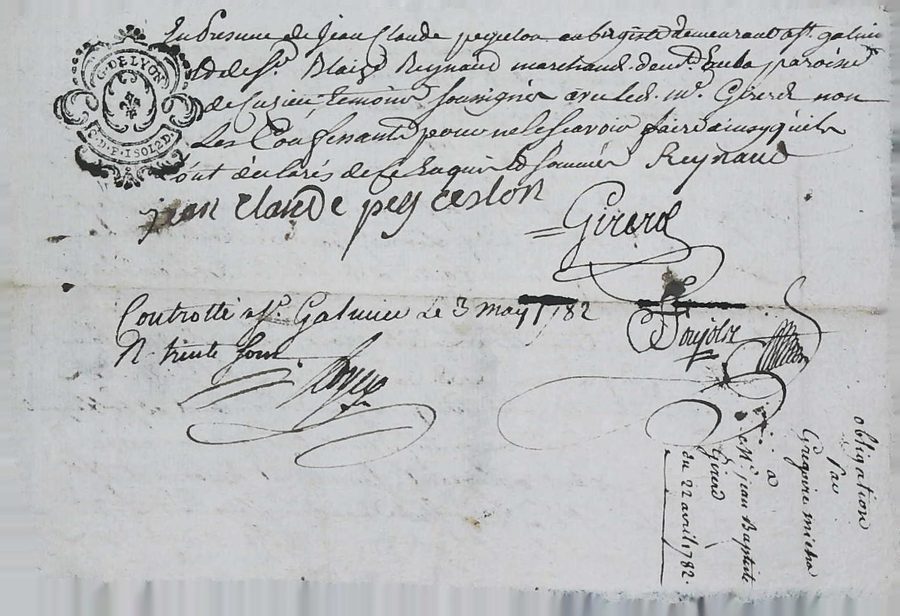 En Presence de Jean Claude peycelon aubergiste demeurant a St. galmier
et de Sr. Blaize Reynaud marchand. demt. En la paroisse
de Cuzieu Temoins soussignés avec led. Mr. Girerd non
Les Confessants pour ne le scavoir faire ainsy qu'ils
ont déclarés de ce Enquis & sommés Reynaud
jean claude peyceslon
Girerd
G. DE LYON
Controllé a St. Galmier Le 3 may 1782
R. trente sous
obligation
par
Grégoire micha
a
Mr. jean Baptiste
Girerd
du 22 avril 1782.